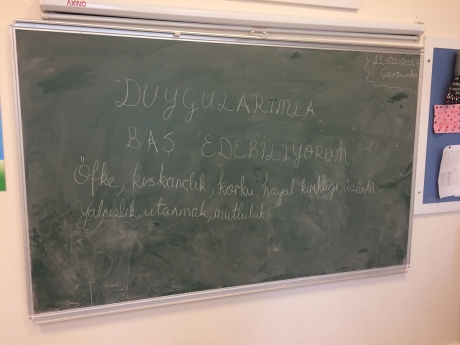 AXINO
DUYGULARIMLA
BAŞ EDEBİLİYORUM
Öfke, kıskançlık, korku hayal kırıklığı, üzüntü
yalnızlık, utanmak, mutluluk